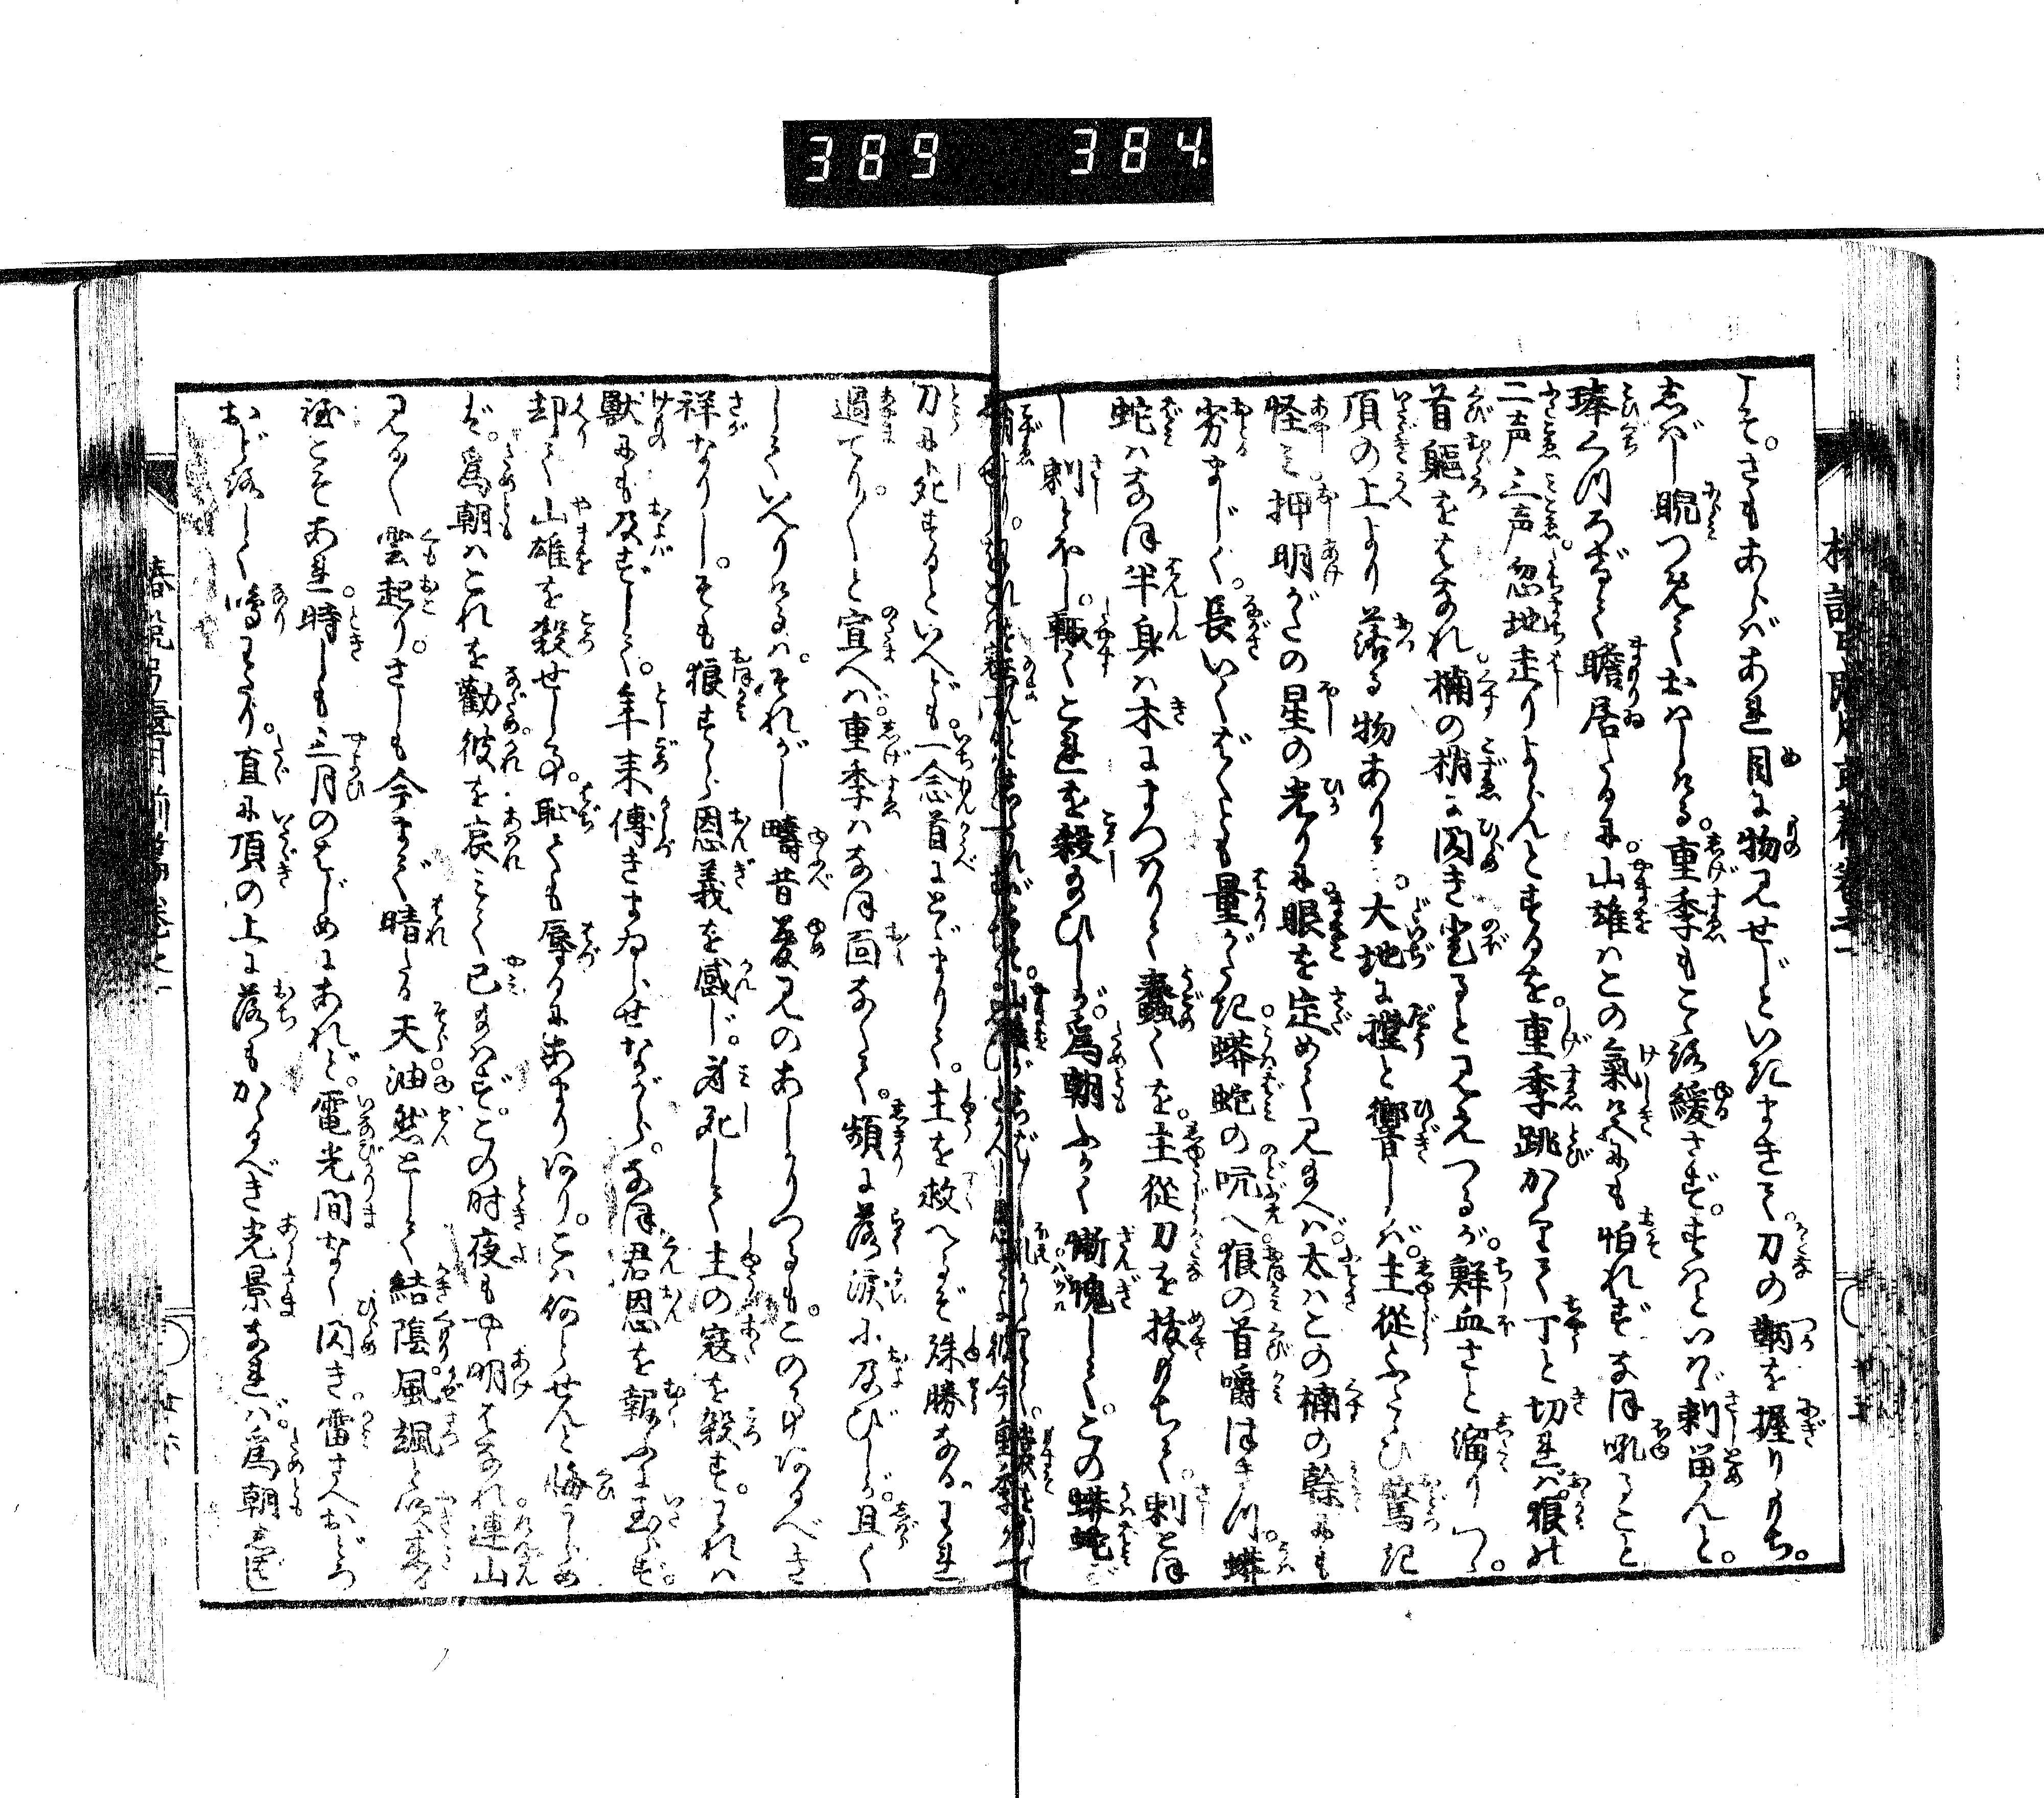 よそ。さもあらばあれ目に物見せじといきまきて。刀の鞆を握りもち。
しばし睨つめておはしける。重季もこゝろ緩さず。すはといはゞ刺畄んと。
くつろげて瞻居たるに。山雄はこの氣色にも怕れずなほ吼ること
二声三声忽地走りよらんとするを。重季跳かゝりて丁と切れば狼の
首軀をはなれ楠の梢に閃き登ると見えつるが。鮮血さと溜りつゝ。
頂の上より落る物ありて。大地に撑と響しかば。主従ふたゝび驚き
怪み押明がたの星の光りに眼を定めて見給へば。太はこの楠の幹にも
劣まじく。長いくばくとも量がたき蟒蛇の吭へ狼の首嚼ほさつ。蟒
蛇はなほ半身は木にまつはりて蠢くを。主従刀を抜もちて。刺とほ
し刺とほし。輙くこれを殺給ひしが。爲朝ふかく慚愧して。この蟒蛇が
刀に死するといへども。一念首にとゞまりて。主を救へるぞ殊勝なる。われ
過てり／＼と宣へば。重季はなほ面なくて。頻に落涙に及びしが。且く
していへりけるは。それがし疇昔夢見のあしかりつるも。このことあるべき
祥なりし。そも狼すら恩義を感じ。身死して主の寇を殺す。われは
獸にも及ずして。年来傅きまゐらせながら。なほ君恩を報ふに至らず。
却て山雄を殺せし事。恥ても辱るにあまりあり。こは何とせんと悔うらめ
ば。爲朝はこれを勸彼を哀みて已給はず。この时夜もや明はなれ連山
見るく雲起り。さしも今まで晴たる天油然として結陰風颯と吹来る
程こそあれ時しも三月のはじめにあれど。電光間なく閃き。雷さへおどろ
おどろしく鳴わたり。直に頂の上に落もかゝるべき光景なれば。爲朝
椿説弓張月前篇巻之
389 384